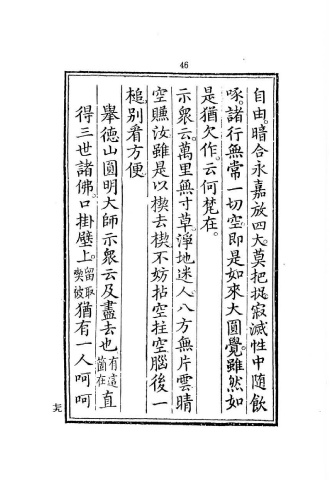 46
自由。暗合永嘉放四大。莫把捉。寂滅性中隨飲
啄。諸行無常一切空。即是如來大圓覺。雖然如
是猶欠作。云何梵在。
示眾云。萬里無寸草。淨地迷人。八方無片雲。晴
空賺汝。雖是以楔去楔。不妨拈空拄空。腦後一
槌。別看方便。
舉德山圓明大師示眾云。及盡去也有這箇在直
得三世諸佛。口掛壁上。留取喫飯猶有一人呵呵